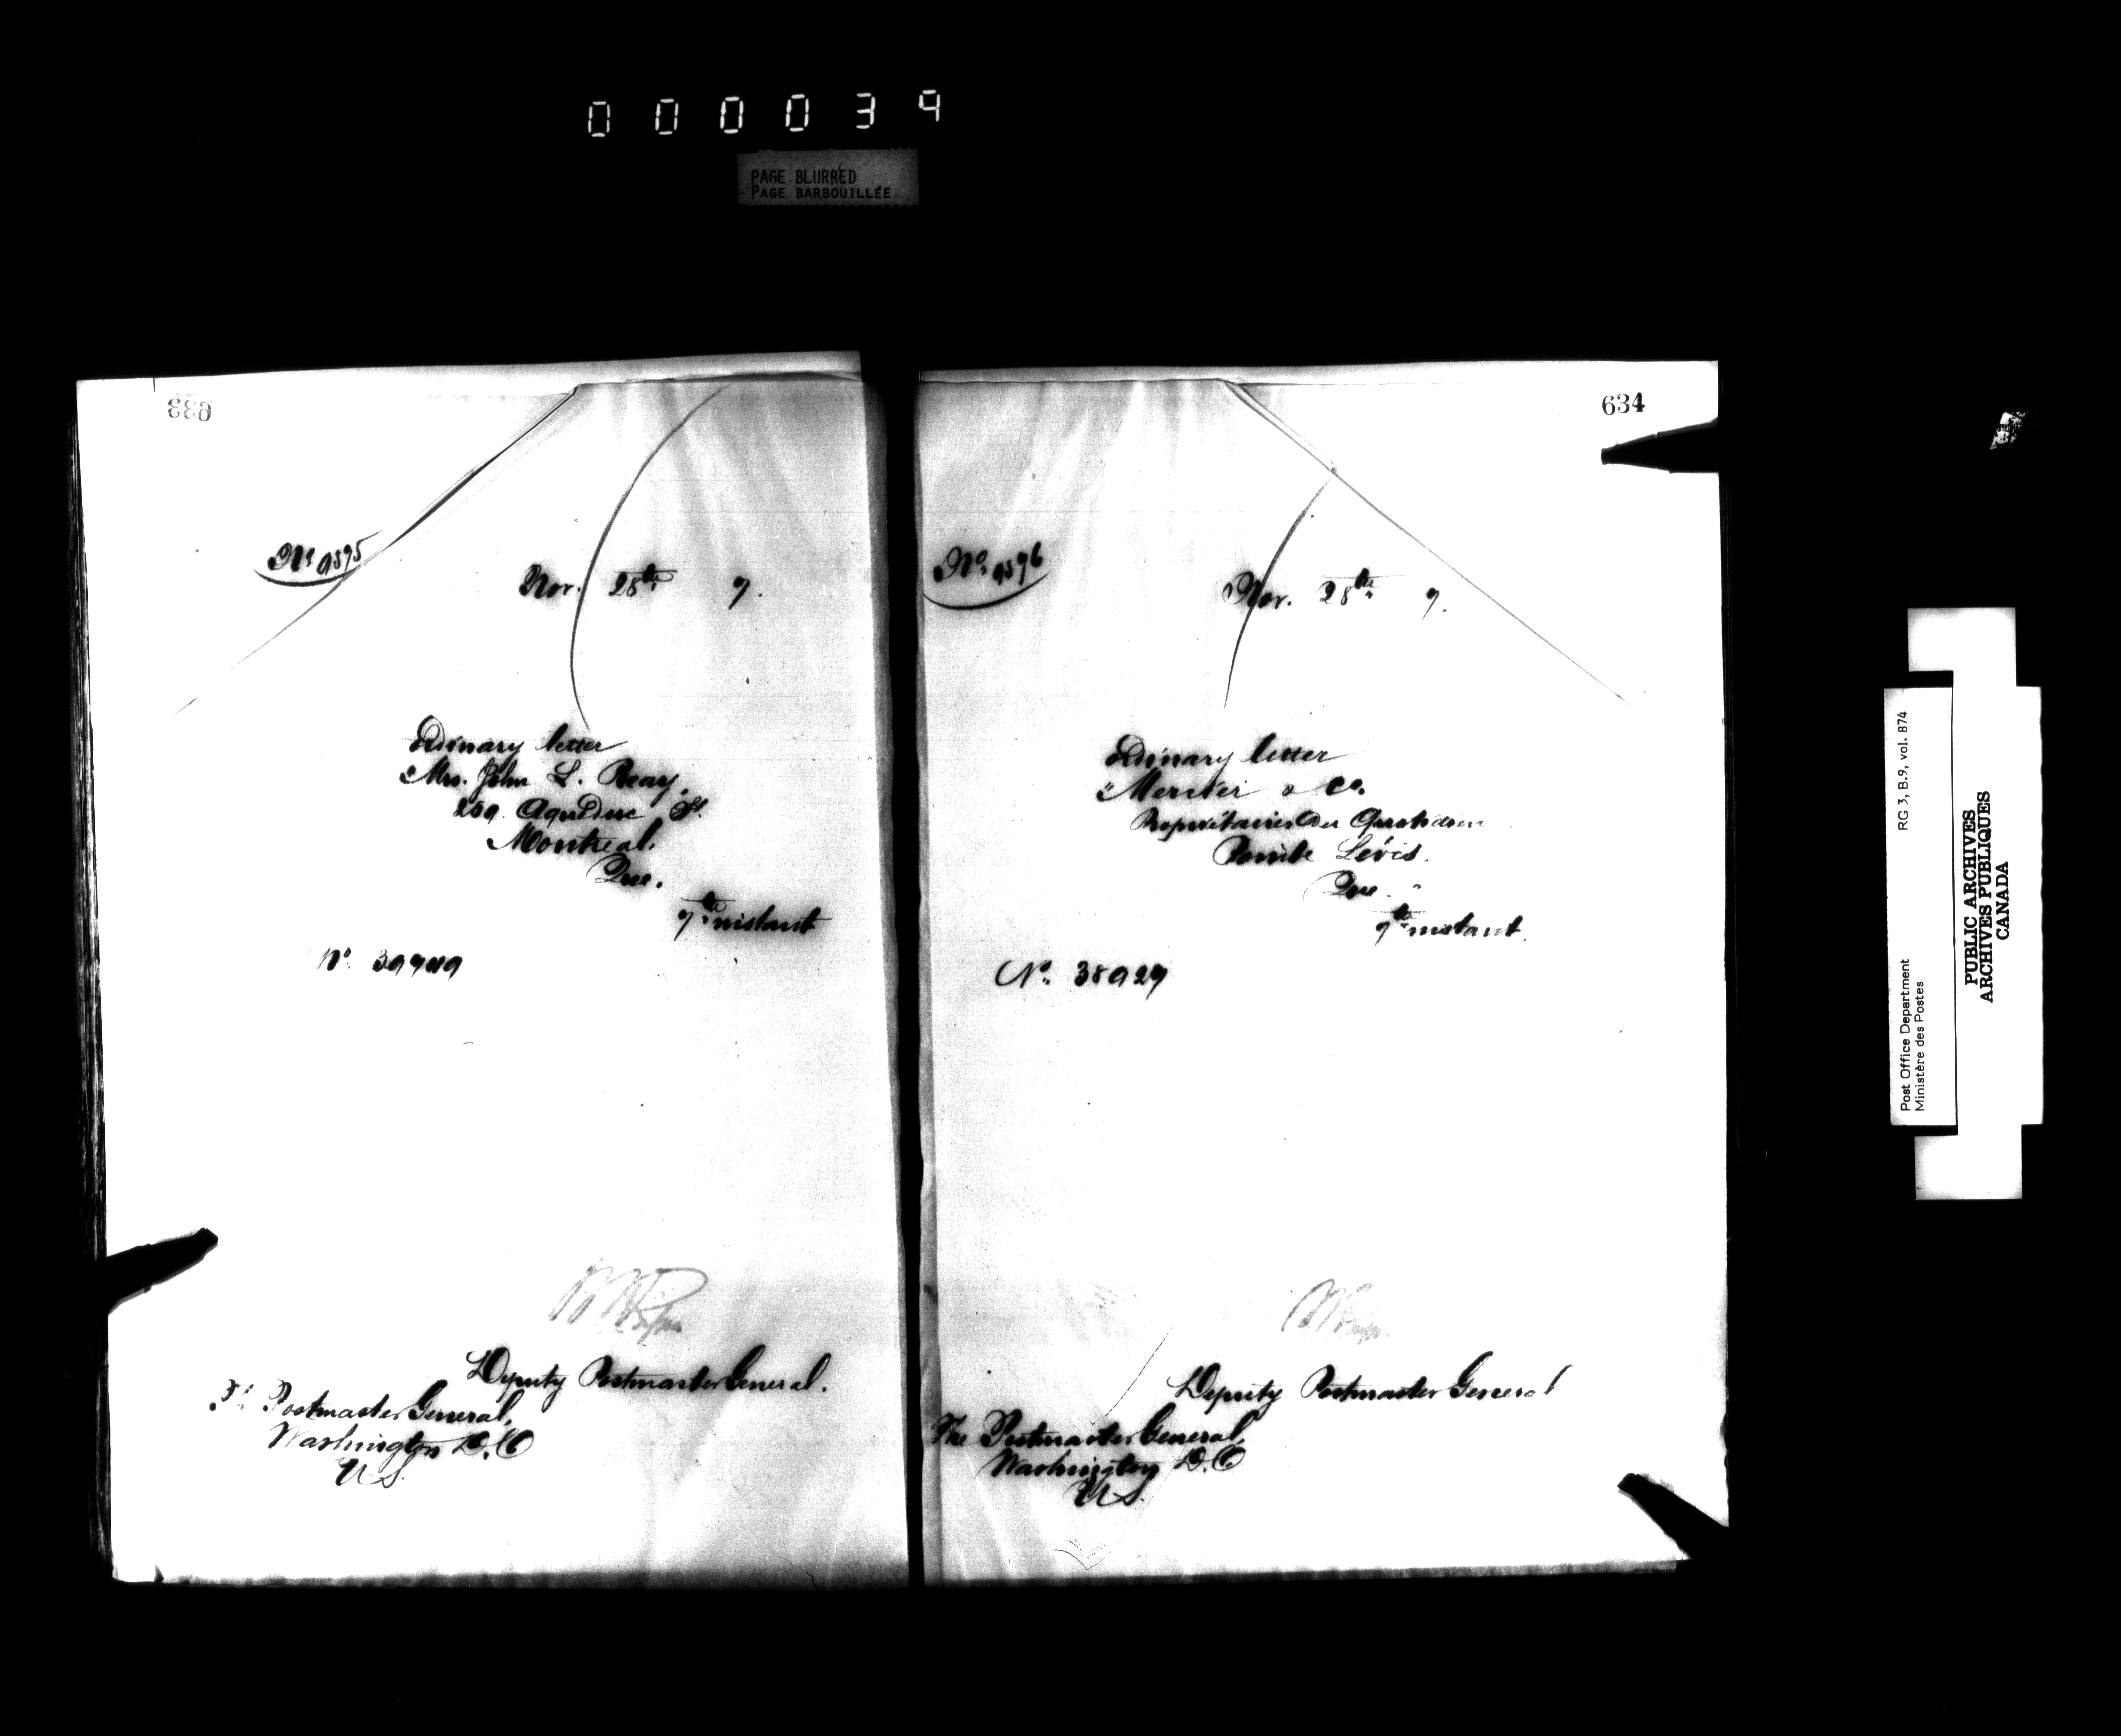 000039
PAGE BLURRED
PAGE BARBOUILLÉE
633
No 9595
Nov. 28th 7.
Ordinary letter
Mrs. John L. Reay.
Aqueduc St.
Montreal.
Que.
7th instant
No.
Deputy Postmaster General.
Postmaster General,
Washington D.C
U.S.
634
No. 9596
Nov. 28th 7.
Ordinary letter
Mercier & Co.
Proprietaires du Quotidien
Lévis.
Que.
7th instant.
No. 38929
Deputy Postmaster General
The Postmaster General,
Washington D.C
U.S.
Post Office Department
Ministère des Postes
RG 3, B.9, vol. 874
PUBLIC ARCHIVES
ARCHIVES PUBLIQUES
CANADA